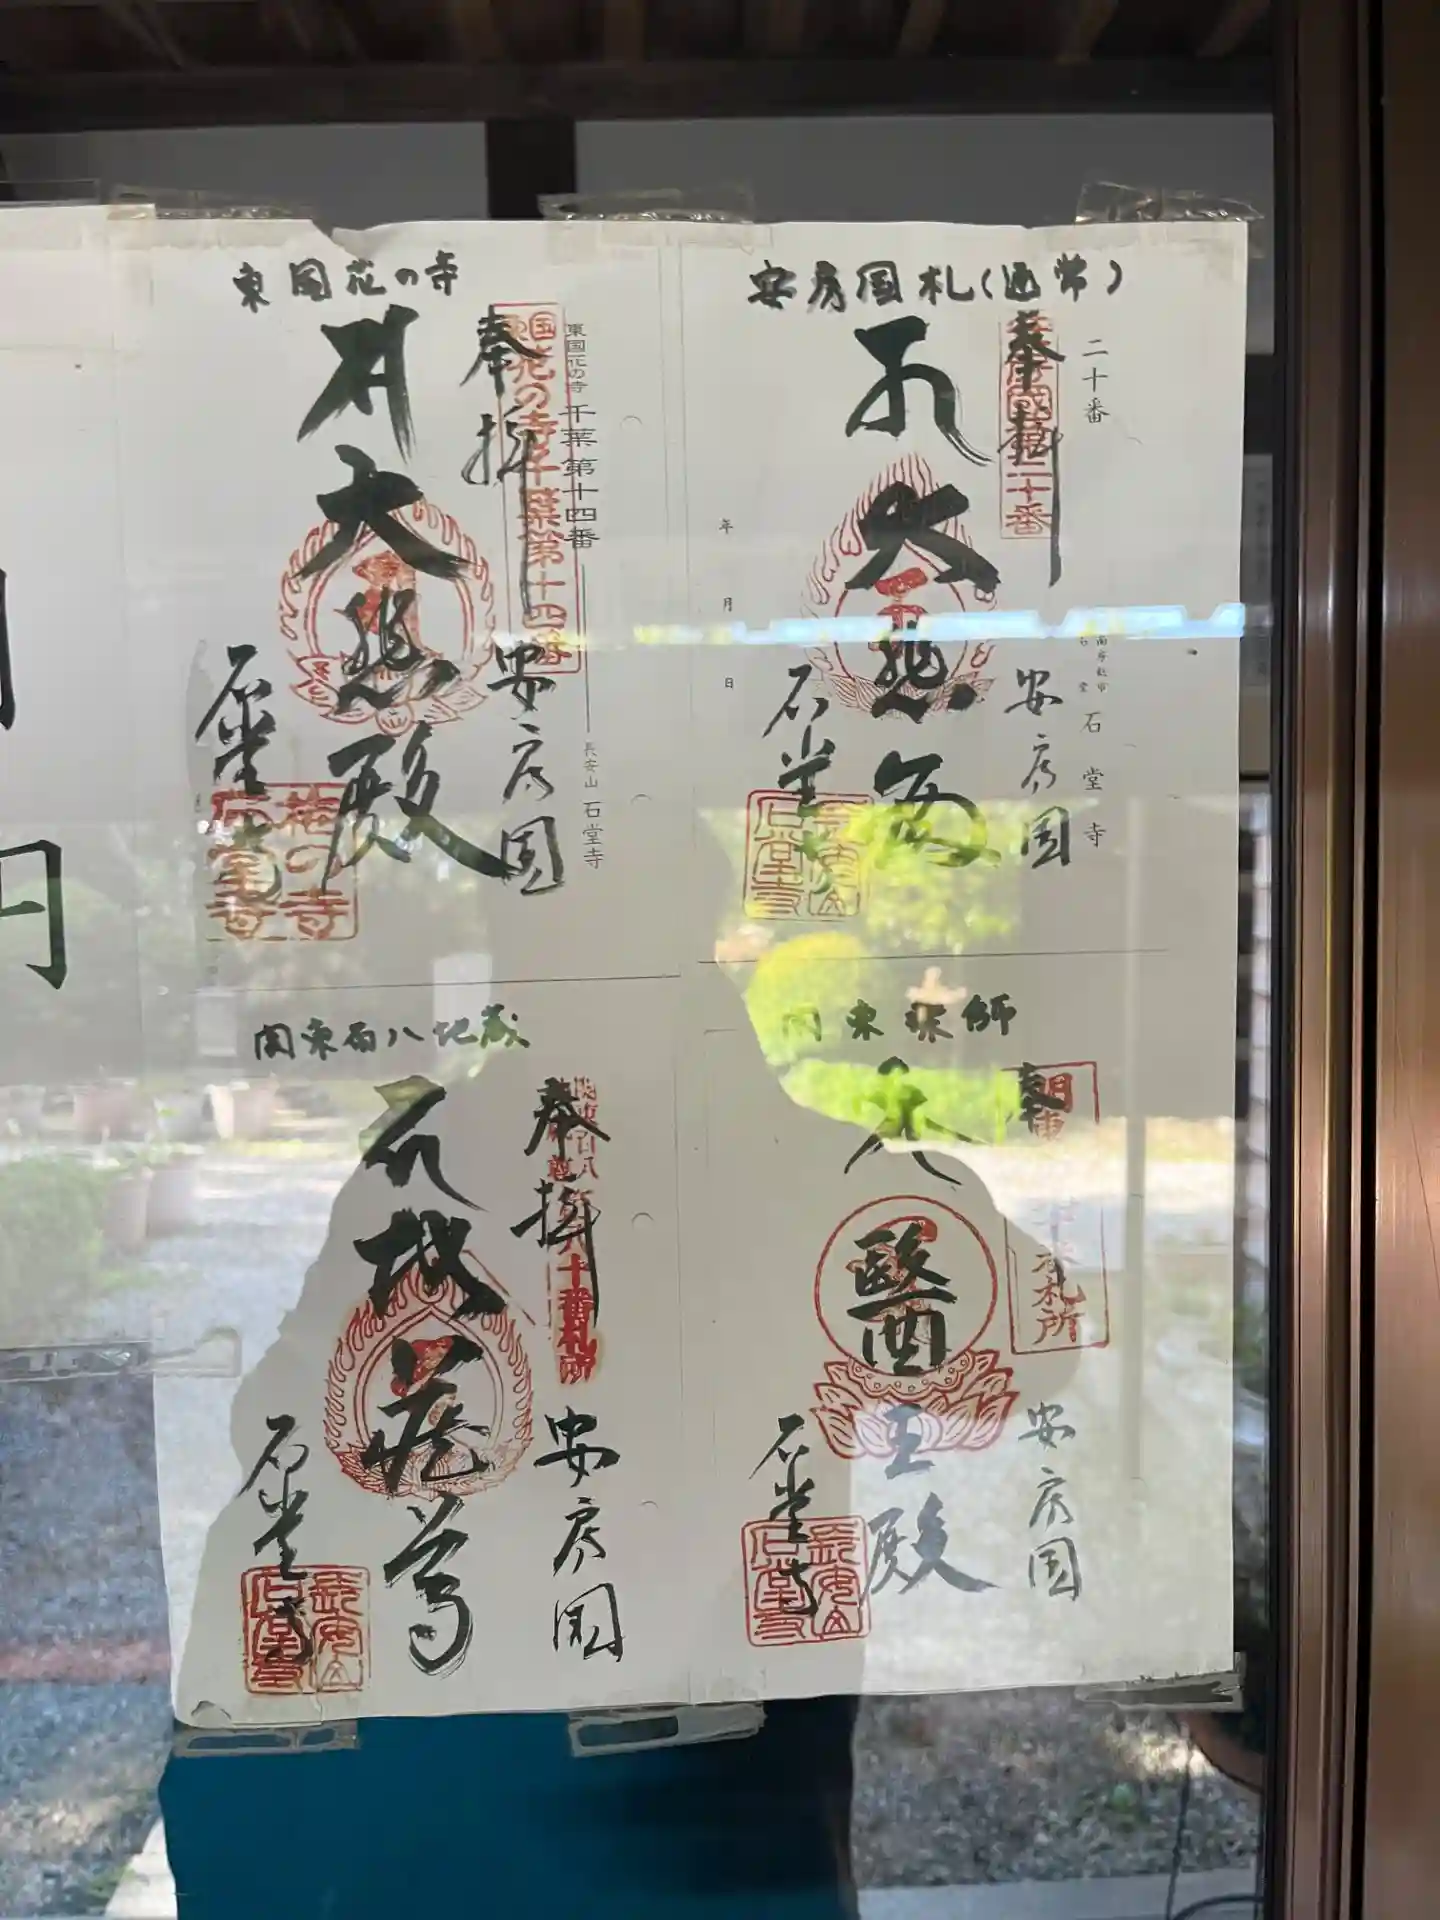 東国花の寺
奉拝
東国花の寺 千葉第十四番
国花の寺千葉第十四番
大悲殿
安房国
石堂寺
長安山 石堂寺
花の寺
石堂寺
安房国札(通常)
二十番
奉拝
二十番
大悲殿
安房国
石堂寺
年 月 日
石堂寺
長安山
石堂寺
関東百八地蔵
奉拝
関東百八
十番札所
地蔵尊
安房国
石堂寺
長安山
石堂寺
関東薬師
奉
札所
醫王殿
安房国
石堂寺
長安山
石堂寺
円